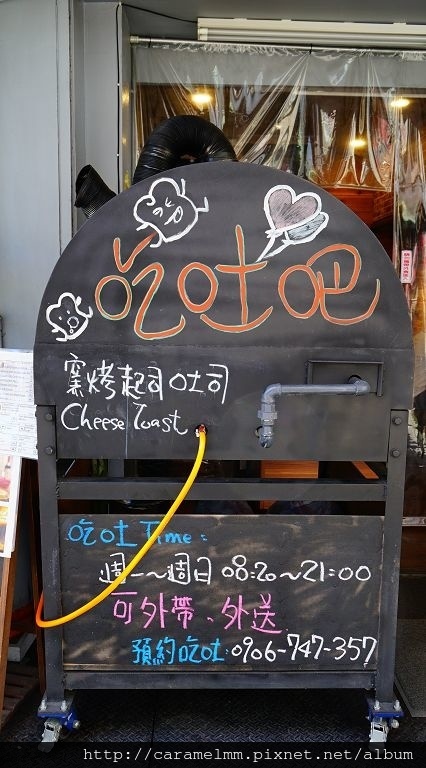 吃吐吧
窯烤起司吐司
Cheese Toast
吃吐Time:
週一~週日 08:20~21:00
可外帶、外送
預約吃吐:0906-747-357
http://caramelmm.pixnet.net/album